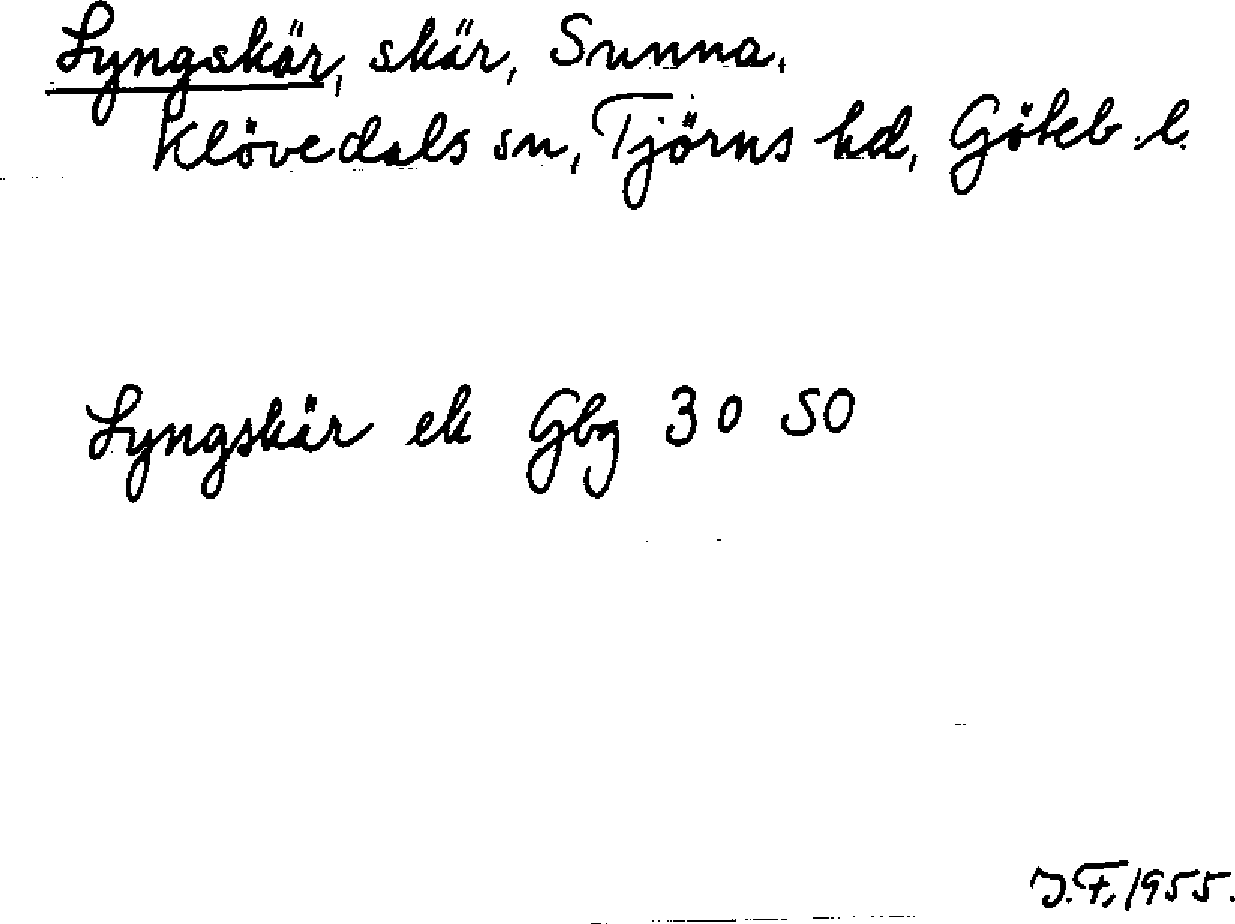 Lyngskär, skär, Sunna.
Klövedals sn, Tjörns hd, Göteb. l.
Lyngskär ek Gbg 30 SO
J.F. 1955.